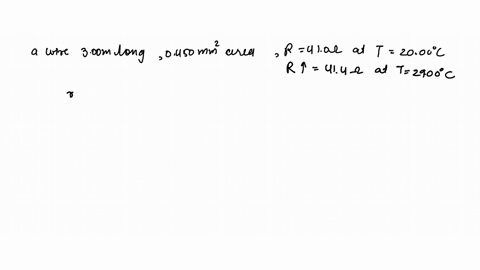 a wire 3.00m long , 0.450 mm² area , R = 41.0Ω at T = 20.00°C
R ↑ = 41.4 Ω at T = 2900°C